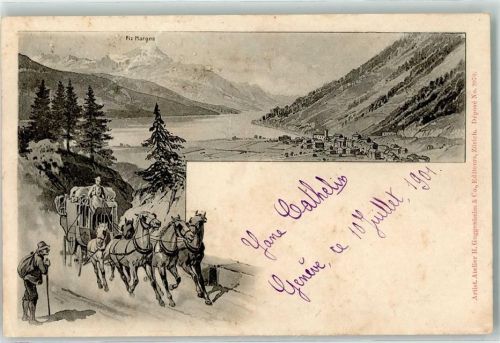 Piz Margna
Jane Cathelin
Genève, ce 10 juillet, 1901.
Artist. Atelier H. Guggenheim & Co., Editeurs, Zürich. Déposé No.